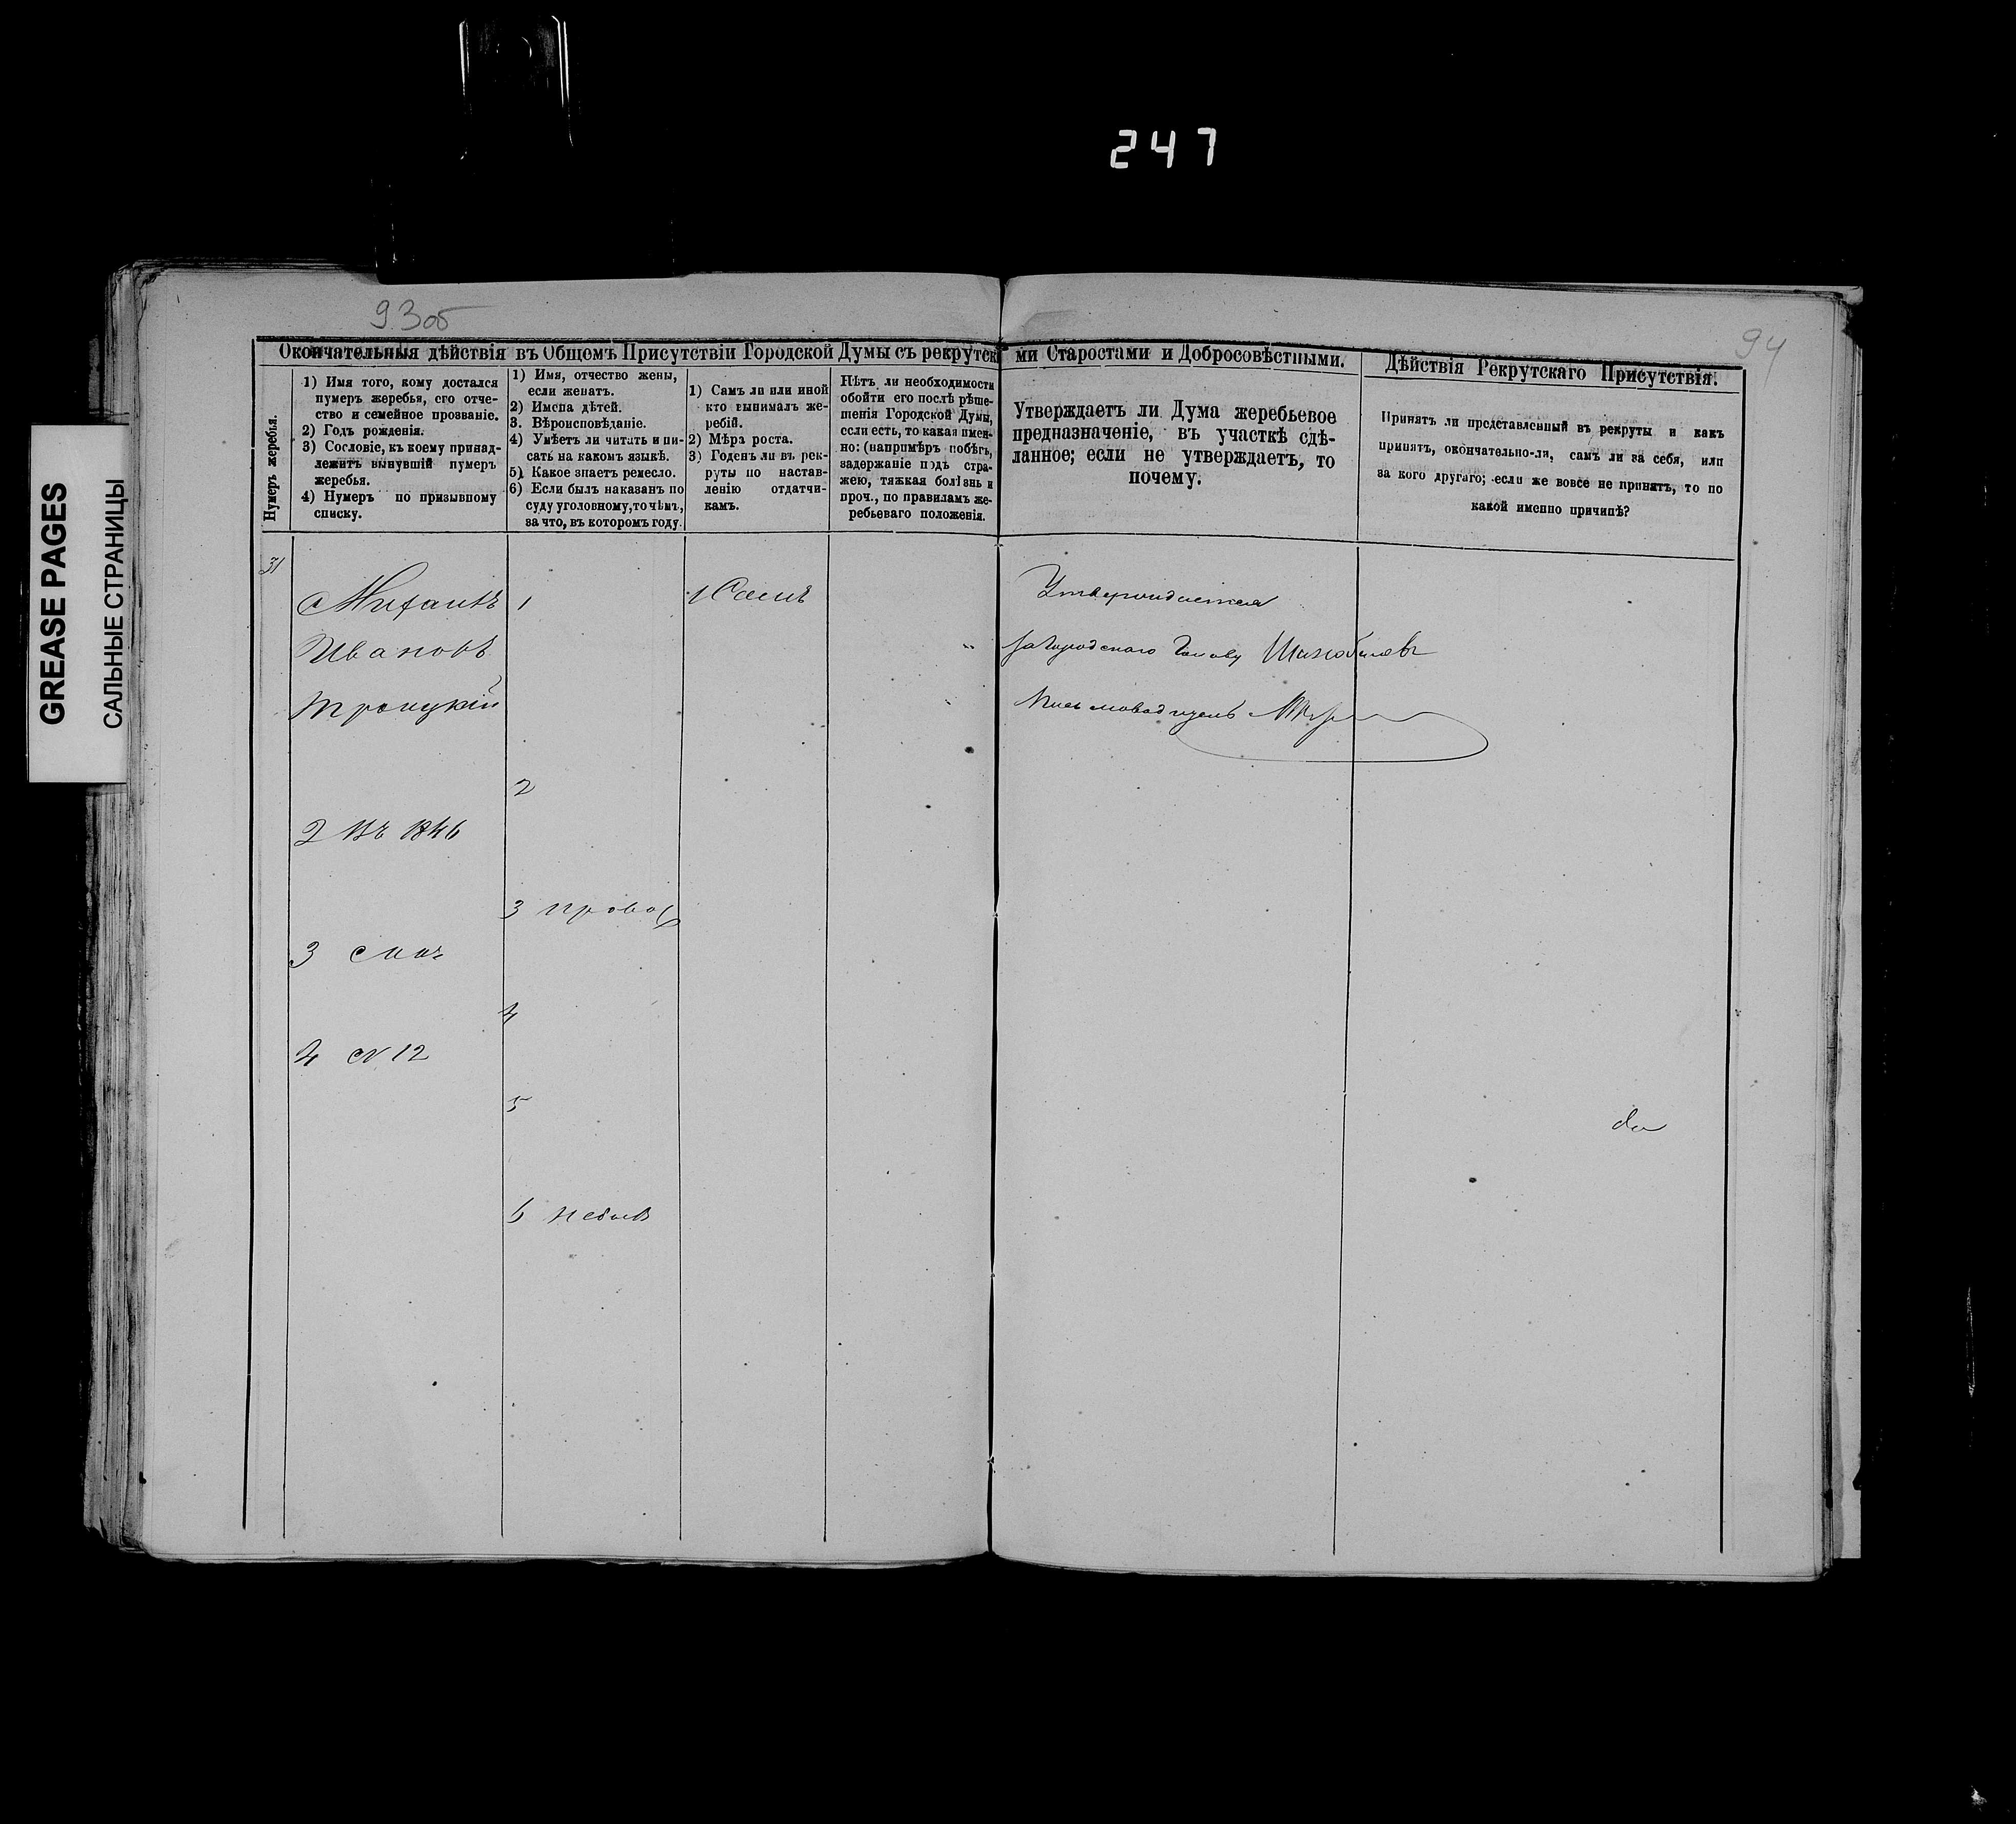 247
GREASE PAGES
САЛЬНЫЕ СТРАНИЦЫ
93об
94
Окончательныя дѣйствія въ Общемъ Присутствіи Городской Думы съ рекрутски
ми Старостами и Добросовѣстными.
Дѣйствія Рекрутскаго Присутствія.
Нумеръ жеребья.
1) Имя того, кому достался
нумеръ жеребья, его отче-
ство и семейное прозваніе.
2) Годъ рожденія.
3) Сословіе, къ коему принад-
лежитъ вынувшій нумеръ
жеребья.
4) Нумеръ по призывному
списку.
1) Имя, отчество жены,
если женатъ.
2) Имена дѣтей.
3. Вѣроисповѣданіе.
4) Умѣетъ ли читать и пи-
сать на какомъ языкѣ.
5) Какое знаетъ ремесло.
6) Если былъ наказанъ по
суду уголовному, то чѣмъ,
за что, въ которомъ году.
1) Самъ ли или иной
кто вынималъ же-
ребій.
2) Мѣра роста.
3) Годенъ ли въ рек-
руты по настав-
ленію отдатчи-
камъ.
Нѣтъ ли необходимости
обойти его послѣ рѣше-
шенія Городской Думы,
если есть, то какая имен-
но: (напримѣръ побѣгъ,
задержаніе подъ стра-
жею, тяжкая болѣзнь и
проч., по правиламъ же-
ребьеваго положенія.
Утверждаетъ ли Дума жеребьевое
предназначеніе, въ участкѣ сдѣ-
ланное; если не утверждаетъ, то
почему.
Принятъ ли представленный въ рекруты и какъ
принятъ, окончательно-ли, самъ ли за себя, или
за кого другаго; если же вовсе не принятъ, то по
какой именно причинѣ?
31
Михаилъ
Ивановъ
Троицкій
2 Въ 1846
3
4 № 12
1
2
3 правос
4
5
6 небылъ
1 Самъ
Утверждается
за Городскаго Голову
Письмоводитель